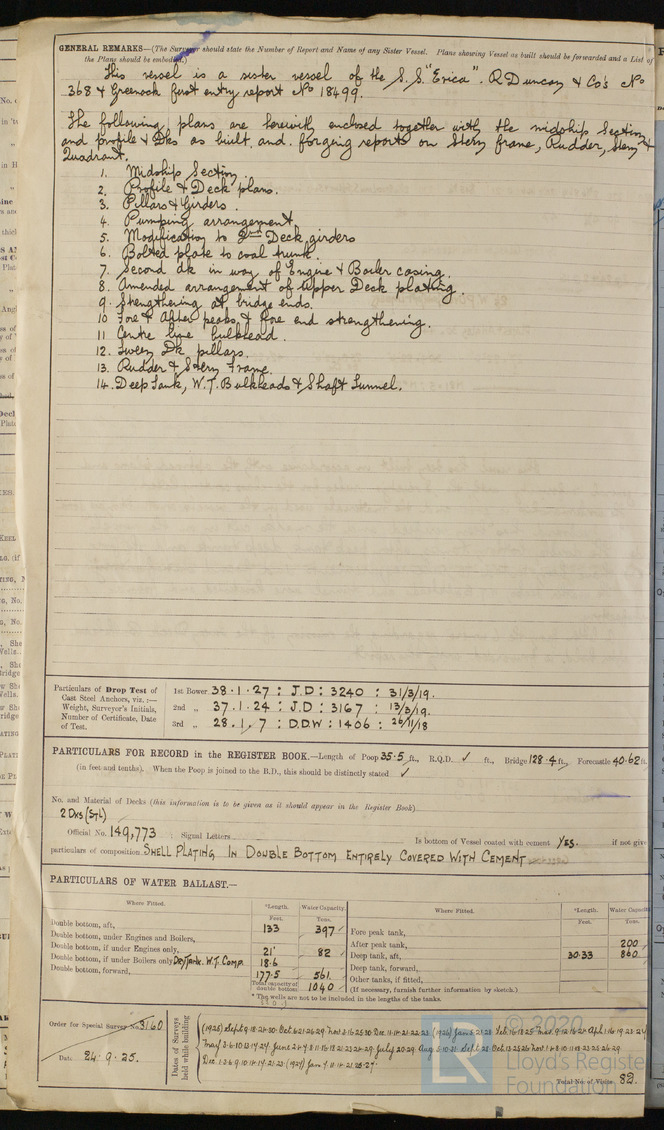 GENERAL REMARKS—(The Surveyor should state the Number of Report and Name of any Sister Vessel. Plans showing Vessel as built should be forwarded and a List of
the Plans should be embodied.)
This vessel is a sister vessel of the S.S. "Erica". R Duncan & Co's No
368 & Greenock first entry report No 18499.
The following plans are herewith enclosed together with the midship section
and profile & Dks as built, and forging reports on Stern frame, Rudder, Stem &
Quadrant.
1. Midship Section.
2. Profile & Deck plans.
3. Pillars & Girders.
4. Pumping arrangement.
5. Modification to 2nd Deck girders
6. Bolted plate to coal trunk.
7. Second dk in way of Engine & Boiler casing.
8. Amended arrangement of Upper Deck plating.
9. Strengthening at bridge ends.
10 Fore & After peaks & fore end strengthening.
11 Centre line bulkhead.
12. Tween Dk pillars.
13. Rudder & Stern Frame.
14. Deep Tank, W.T. Bulkheads & Shaft Tunnel.
Particulars of Drop Test of
Cast Steel Anchors, viz.:—
Weight, Surveyor's Initials,
Number of Certificate, Date
of Test.
1st Bower 38.1.27 : J.D : 3240 : 31/3/19.
2nd „ 37.1.24 : J.D : 3167 : 13/3/19.
3rd „ 28.1.7 : D.D.W : 1406 : 26/11/18
PARTICULARS FOR RECORD in the REGISTER BOOK.—Length of Poop 35.5 ft., R.Q.D. ✓ ft., Bridge 128.4 ft., Forecastle 40.62 ft.
(in feet and tenths). When the Poop is joined to the B.D., this should be distinctly stated ✓
No. and Material of Decks (this information is to be given as it should appear in the Register Book)
2 Dks (Stl)
Official No. 149,773 : Signal Letters Is bottom of Vessel coated with cement YES. if not give
particulars of composition SHELL PLATING IN DOUBLE BOTTOM ENTIRELY COVERED WITH CEMENT
PARTICULARS OF WATER BALLAST.—
Where Fitted. *Length. Water Capacity. Where Fitted. *Length. Water Capacity.
Feet. Tons. Feet. Tons.
Double bottom, aft, 133 397 Fore peak tank,
Double bottom, under Engines and Boilers, After peak tank, 200
Double bottom, if under Engines only, 21' 82 Deep tank, aft, 30.33 860
Double bottom, if under Boilers only, Dry Tank. W.T. Comp. 18.6 Deep tank, forward,
Double bottom, forward, 177.5 561. Other tanks, if fitted,
Total capacity of double bottom 1040 (If necessary, furnish further information by sketch.)
* The wells are not to be included in the lengths of the tanks.
Order for Special Survey No. 3160
Date 24.9.25.
Dates of Surveys held while building
Total No. of Visits 82.
© 2020
Lloyd's Register
Foundation